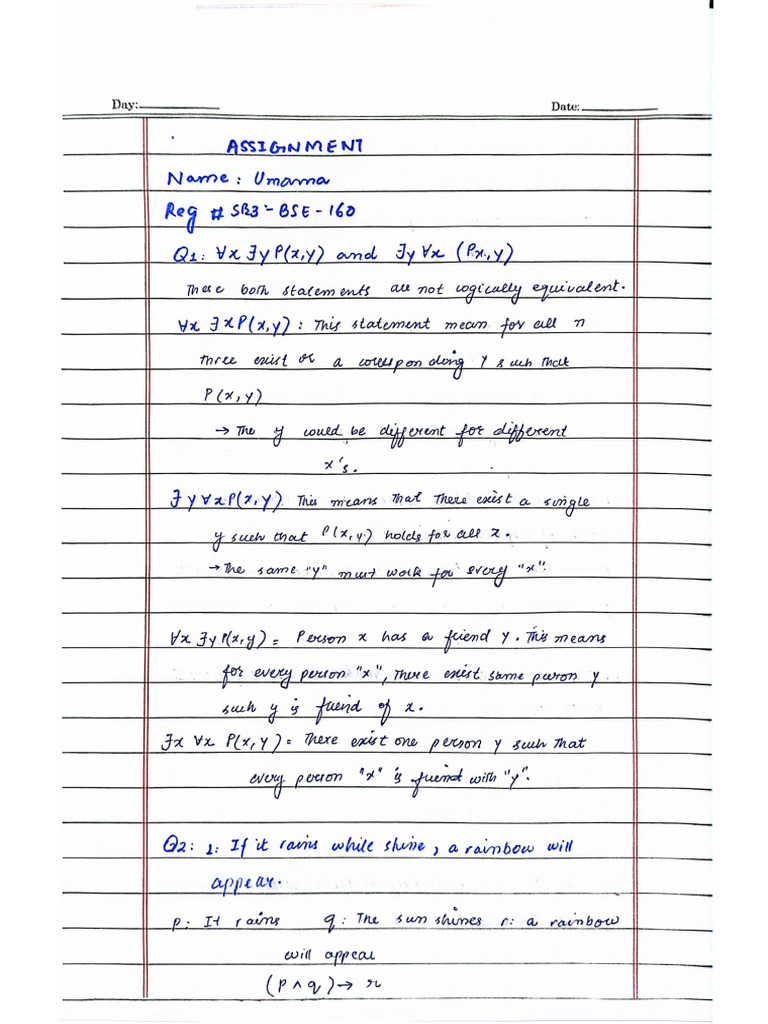 Day: Date:
ASSIGNMENT
Name: Umama
Reg # SB3-BSE-160
Q1: ∀x ∃y P(x,y) and ∃y ∀x (Px,y)
These both statements are not logically equivalent.
∀x ∃x P(x,y): This statement mean for all n
three exist or a corresponding y such that
P(x,y)
→ The y could be different for different
x's.
∃y ∀x P(x,y). This means that there exist a single
y such that P(x,y) holds for all x.
→ The same "y" must work for every "x".
∀x ∃y P(x,y) = Person x has a friend y. This means
for every person "x", there exist same person y
such y is friend of x.
∃x ∀x P(x,y) = There exist one person y such that
every person "x" is friend with "y".
Q2: 1: If it rains while shine, a rainbow will
appear.
p: It rains q: The sun shines r: a rainbow
will appear
(p ∧ q) → r